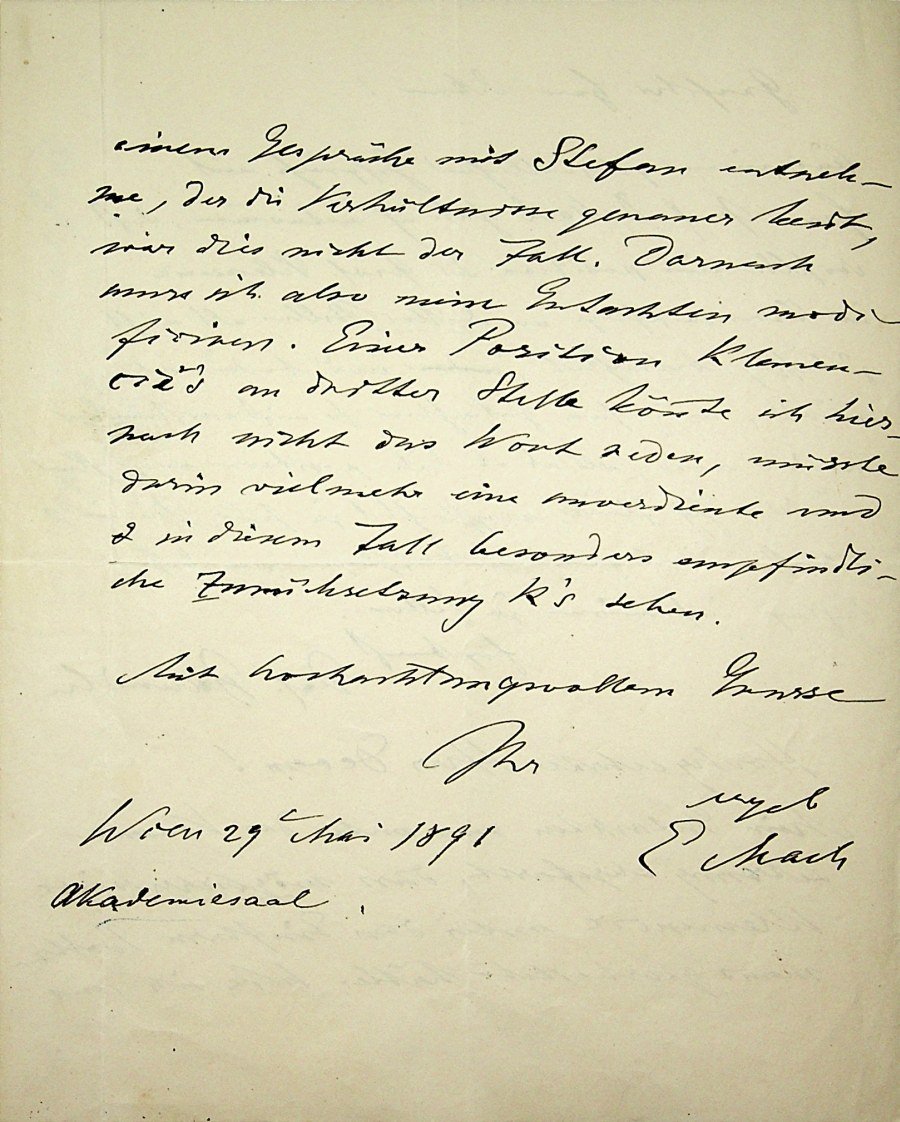 einem Gespräche mit Stefan entneh-
me, der die Verhältnisse genauer kennt,
war dies nicht der Fall. Darnach
muss ich also meine Gutachten modi-
ficiren. Einer Position Klemen-
cič's an dritter Stelle könnte ich hier-
nach nicht das Wort reden, müsste
darin vielmehr eine unverdiente und
in diesem Fall besonders empfindli-
che Zurücksetzung K's sehen.
Mit hochachtungsvollem Grusse
Ihr
ergeb
E Mach
Wien 29 Mai 1891
Akademiesaal.